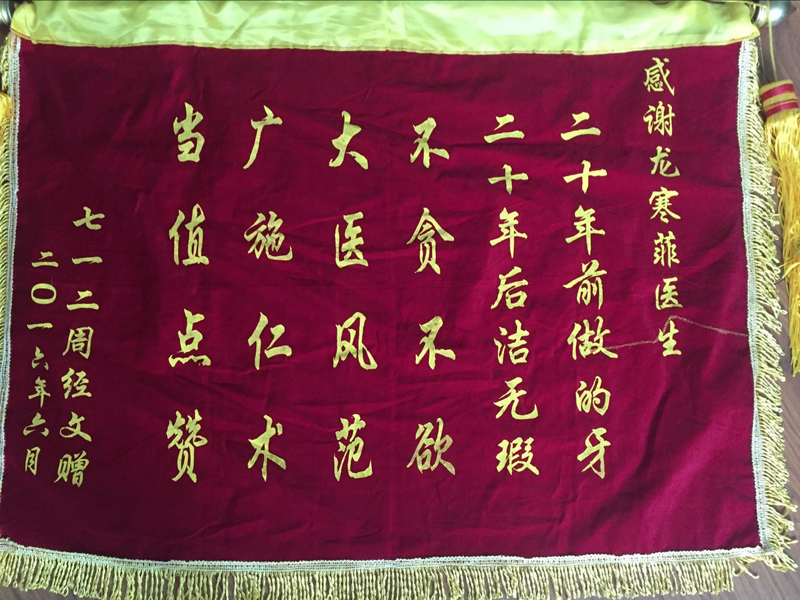 感谢龙寒菲医生
二十年前做的牙
二十年后洁无瑕
不贪不欲
大医风范
广施仁术
当值点赞
七一二周经文赠
二〇一六年六月